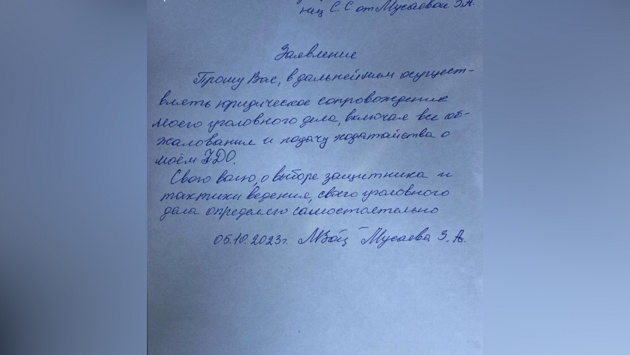 нец С.С от Мусаевой З.А.
Заявление
Прошу Вас, в дальнейшем осущест-
влять юридическое сопровождение
моего уголовного дела, включая все об-
жалования и подачу ходатайства о
моём УДО.
Свою валю, о выборе защитника и
тактики ведения, своего уголовного
дела определяю самостоятельно
05.10.2023г. Мусаева З.А.